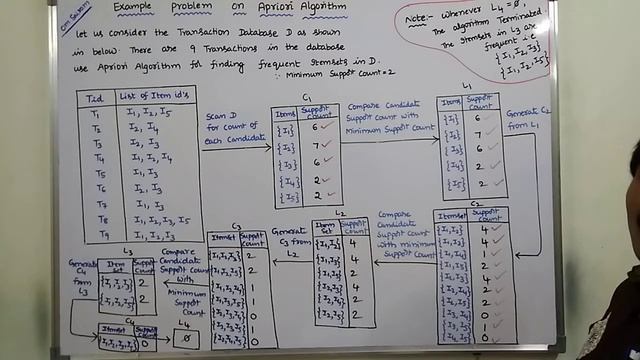 Om Sairam
Example Problem on Apriori Algorithm
Let us consider the Transaction Database D as shown
in below. There are 9 Transactions in the database
use Apriori Algorithm for finding frequent Itemsets in D.
∵ Minimum Support Count = 2
Note:- Whenever L4 = Ø,
The algorithm Terminated
The Itemsets in L3 are
frequent i.e
{I1, I2, I3}
{I1, I2, I5}
Tid List of Item id's
T1 I1, I2, I5
T2 I2, I4
T3 I2, I3
T4 I1, I2, I4
T5 I1, I3
T6 I2, I3
T7 I1, I3
T8 I1, I2, I3, I5
T9 I1, I2, I3
Scan D
for count of
each Candidate
C1
Items Support Count
{I1} 6 ✓
{I2} 7 ✓
{I3} 6 ✓
{I4} 2 ✓
{I5} 2 ✓
Compare Candidate
Support count with
Minimum Support Count
L1
Items Support Count
{I1} 6
{I2} 7
{I3} 6
{I4} 2
{I5} 2
Generate C2
from L1
C2
Itemset Support Count
{I1, I2} 4
{I1, I3} 4
{I1, I4} 1
{I1, I5} 2
{I2, I3} 4
{I2, I4} 2
{I2, I5} 2
{I3, I4} 0
{I3, I5} 1
{I4, I5} 0
Compare
Candidate
Support Count
with minimum
Support Count
L2
Item Set Support Count
{I1, I2} 4
{I1, I3} 4
{I1, I5} 2
{I2, I3} 4
{I2, I4} 2
{I2, I5} 2
Generate
C3 from
L2
C3
Itemset Support Count
{I1, I2, I3} 2
{I1, I2, I5} 2
1
1
0
0
0
Compare
Candidate
Support Count
with
Minimum
Support
Count
L3
Item set Support Count
{I1, I2, I3} 2
{I1, I2, I5} 2
Generate
C4
from
L3
C4
Itemset Support Count
0
L4
Ø